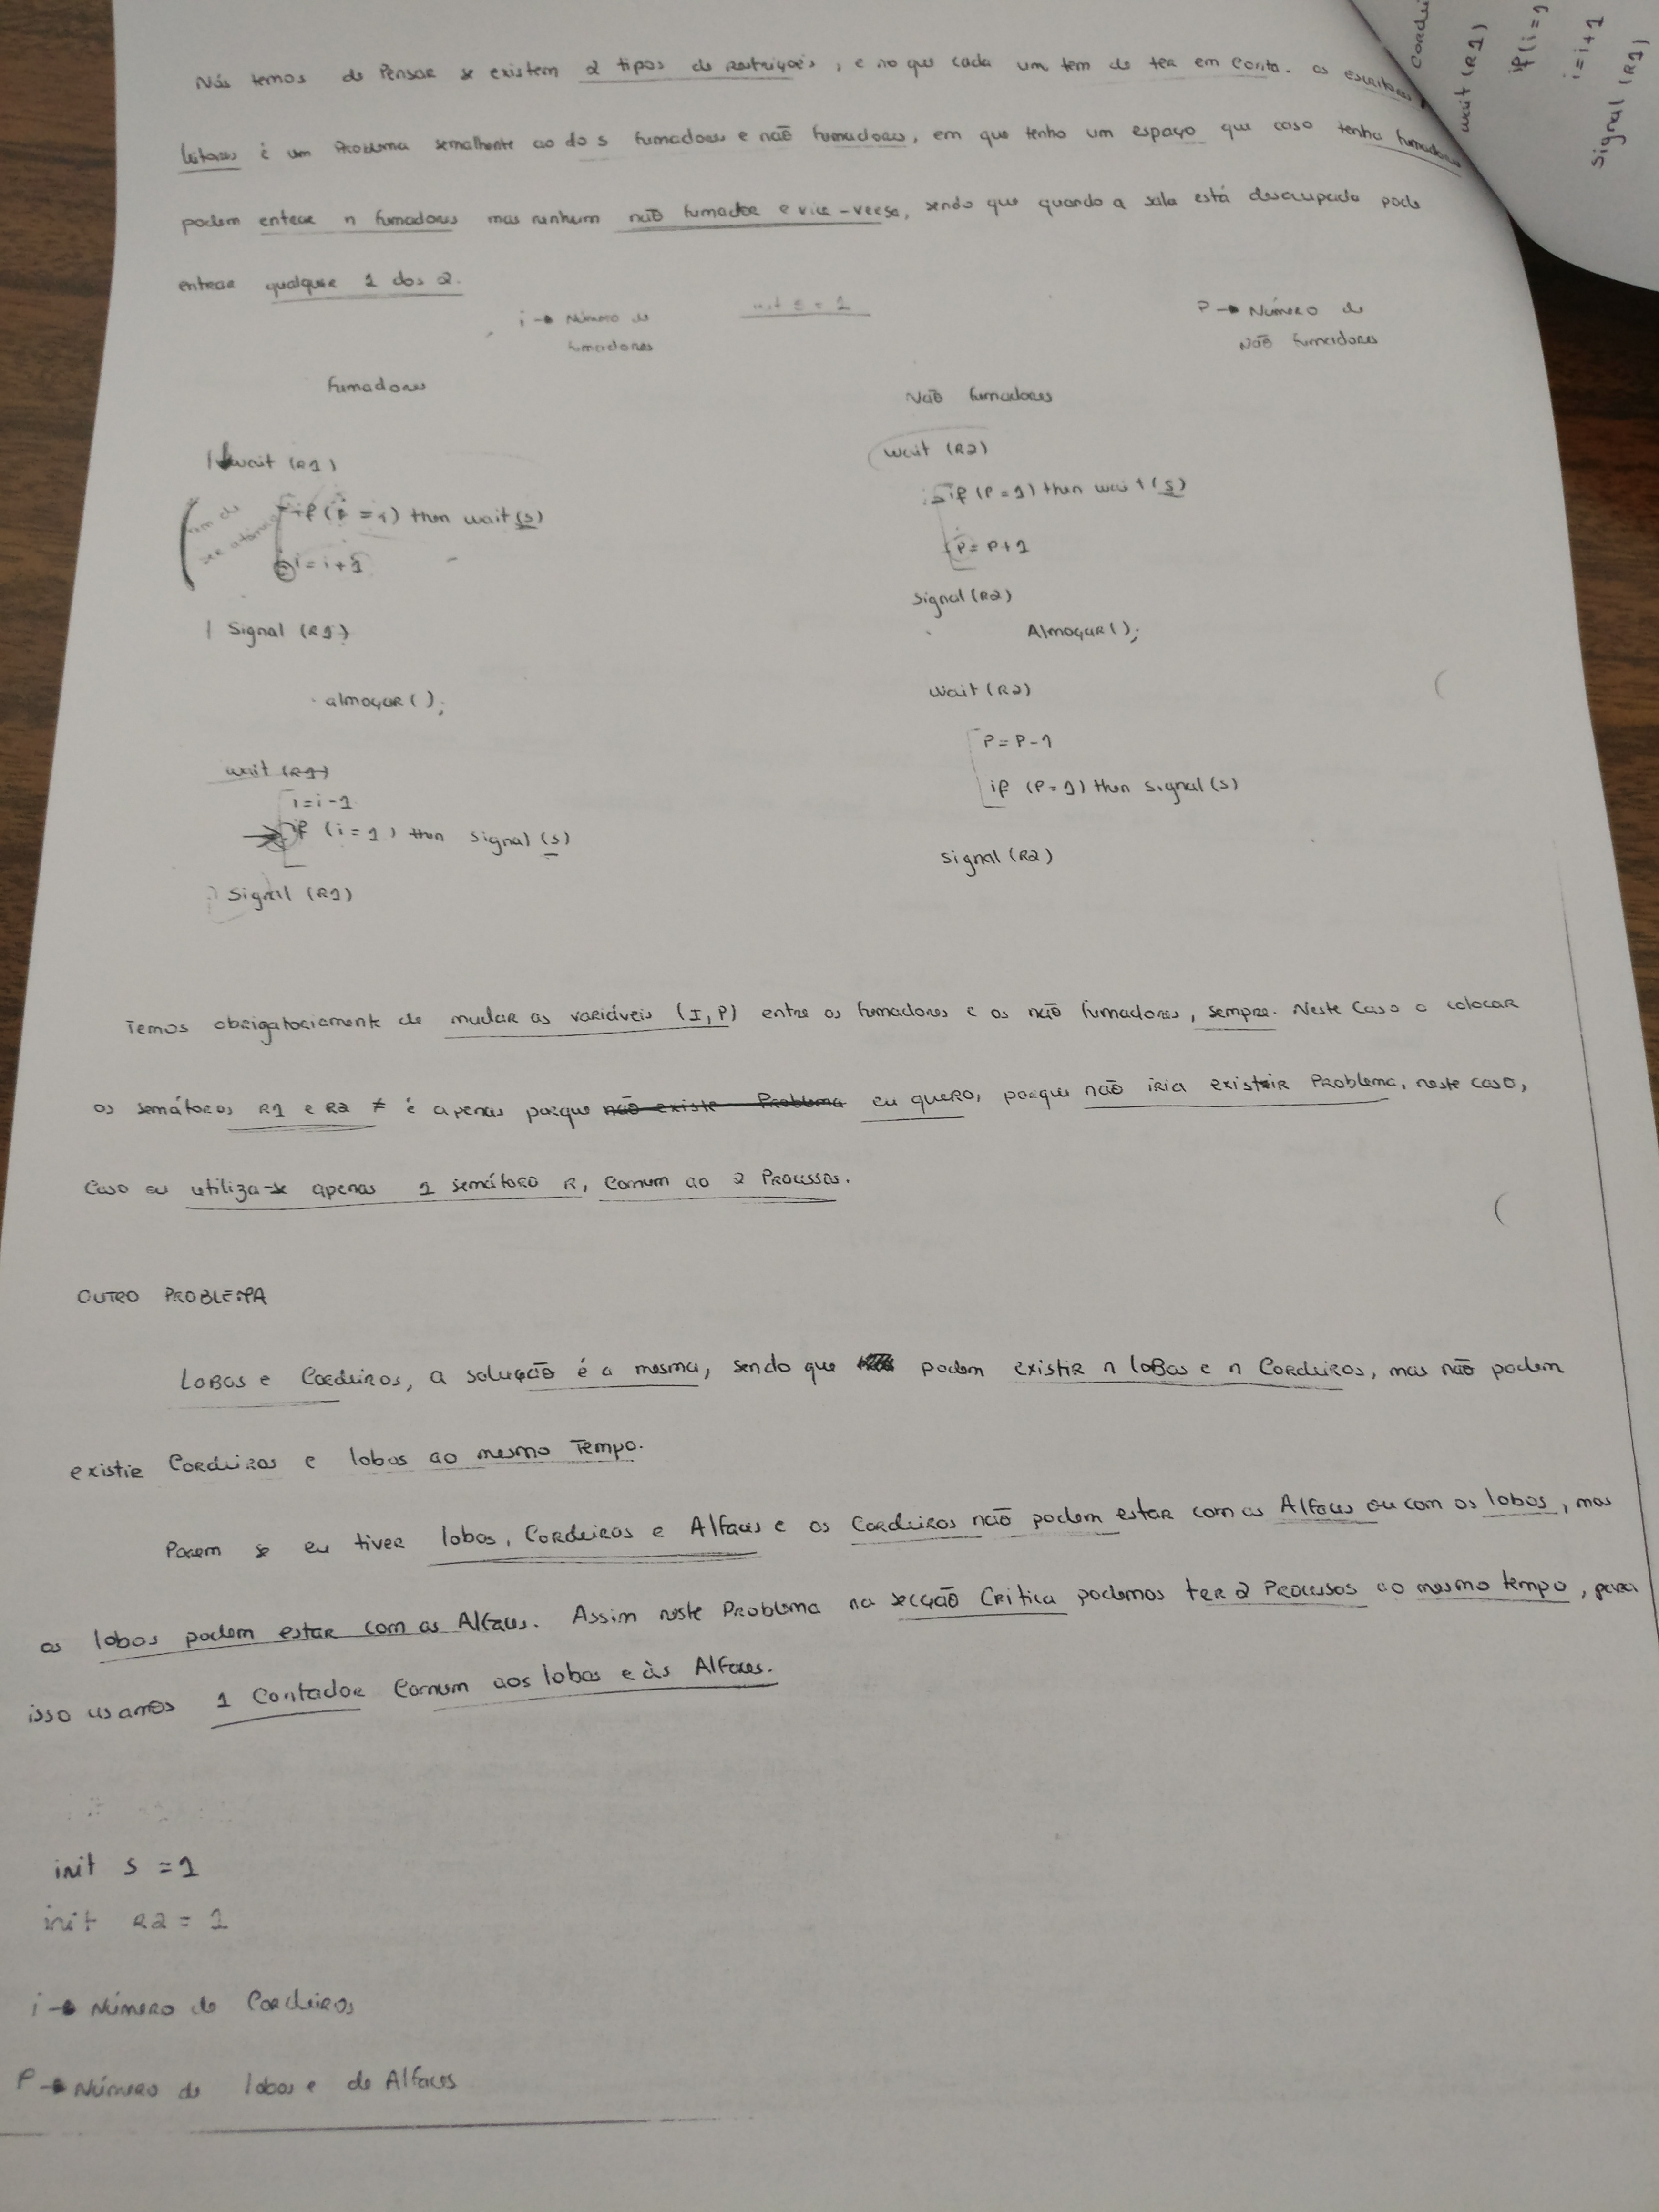 Nós temos de Pensar se existem 2 tipos de restrições, e no que cada um tem de ter em conta. os escritores
leitores é um Problema semelhante ao dos fumadores e não fumadores, em que tenho um espaço que caso tenha fumadores
podem entrar n fumadores mas nenhum não fumador e vice-versa, sendo que quando a sala está desocupada pode
entrar qualquer 1 dos 2.
i → Número de
fumadores
init s = 1
P → Número de
Não fumadores
fumadores
wait (R1)
if (i = 1) then wait (s)
i = i + 1
tem de
ser
Signal (R1)
almoçar ();
wait (R1)
i = i - 1
if (i = 1) then signal (s)
Signal (R1)
Não fumadores
wait (R2)
if (P = 1) then wait (s)
P = P + 1
Signal (R2)
Almoçar ();
wait (R2)
P = P - 1
if (P = 1) then signal (s)
signal (R2)
Temos obrigatoriamente de mudar as variáveis (I, P) entre os fumadores e os não fumadores, sempre. Neste Caso o colocar
os semáforos R1 e R2 ≠ é apenas porque não existe Problema eu quero, porque não iria existir Problema, neste caso,
Caso eu utiliza-se apenas 1 semáforo R, Comum ao 2 Processos.
OUTRO PROBLEMA
Lobos e Cordeiros, a solução é a mesma, sendo que podem existir n lobos e n Cordeiros, mas não podem
existir Cordeiros e lobos ao mesmo Tempo.
Porem se eu tiver lobos, Cordeiros e Alfaces e os Cordeiros não podem estar com as Alfaces ou com os lobos, mas
os lobos podem estar com as Alfaces. Assim neste Problema na secção Critica podemos ter 2 Processos ao mesmo tempo, para
isso usamos 1 Contador Comum aos lobos e às Alfaces.
init s = 1
init R2 = 1
i → Número de Cordeiros
P → Número de lobos e de Alfaces
wait (R1)
if (i = 1
i = i + 1
signal (R1)